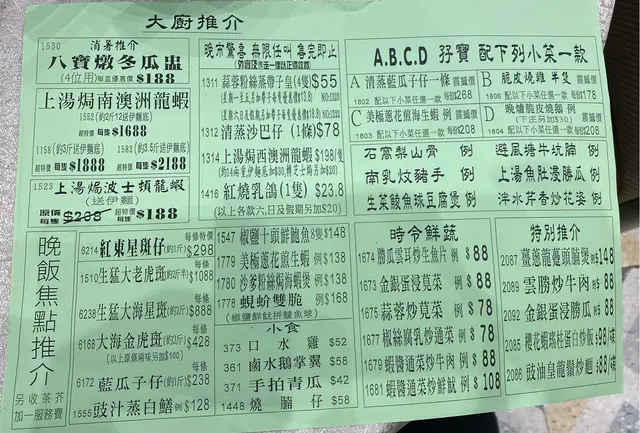 大廚推介
1530 消暑推介
八寶燉冬瓜盅
(4位用) 每盅優惠價$188
上湯焗南澳洲龍蝦
1552 (約2斤12送伊麵底)
超特價 每隻$1688
1158 (約3斤送伊麵底) 1582 (約3斤8送伊麵底)
超特價 每隻$1888 超特價 每隻$2188
1523 上湯焗波士頓龍蝦
(送伊麵)
原價 每隻 $208 超特價 每隻$188
晚市驚喜 無限任叫 喜完即止
1311 蒜蓉粉絲蒸帶子皇(4隻)$55
1312 清蒸沙巴仔(1條)$78
1314 上湯焗西澳洲龍蝦$198/隻
1416 紅燒乳鴿(1隻) $23.8
(以上各款六,日及假期另加$20)
A.B.C.D 孖寶 配下列小菜一款
A 清蒸藍瓜子仔一條 震撼價
1802 配以下小菜任選一款 每份268
B 脆皮燒雞半隻 震撼價
1806 配以下小菜任選一款 每份178
C 美極蔥花煎海生蝦 例 震撼價
1803 配以下小菜任選一款 每份208
D 晚爐脆皮燒鵝 例 震撼價
(下庄另加$30)
1804 配以下小菜任選一款 每份208
石窩梨山骨 例 避風塘牛坑腩 例
南乳炆豬手 例 上湯魚肚浸勝瓜 例
生菜鯪魚球豆腐煲 例 泮水芹香炒花姿 例
晚飯焦點推介
另收茶芥
加一服務費
6214 紅東星斑仔(約1斤) 每條特價$298
1510 生猛大老虎斑(約2斤半) 每條$1088
6238 生猛大海星斑(約2斤) 每條$888
6168 大海金虎斑(約2斤) 每條$428
(以上原條兩味另加$100)
6172 藍瓜子仔(約1斤) 每條$238
1555 豉汁蒸白鱔 例$128
1547 椒鹽十頭鮮鮑魚8隻$148
1779 美極蔥花煎生蝦 例$138
1780 沙爹粉絲焗海蝦煲 例$138
1778 蜆蚧雙脆 例$168
(椒鹽鮮魷拼鯪魚球)
小食
373 口水雞 $52
361 鹵水鵝掌翼 $58
371 手拍青瓜 $42
1448 燒腩仔 $58
時令鮮蔬
1674 勝瓜雲耳炒生魚片 例$88
1673 金銀蛋浸莧菜 例$88
1675 蒜蓉炒莧菜 例$78
1677 椒絲腐乳炒通菜 例$78
1679 蝦醬通菜炒牛肉 例$88
1681 蝦醬通菜炒鮮魷 例$108
特別推介
2087 薑蔥龍躉頭腩煲 例$148
2089 雲勝炒牛肉 例$88
2092 金銀蛋浸勝瓜 例$88
2085 櫻花蝦瑤柱蛋白炒飯$98
2086 豉油皇龍鬚炒麵$88